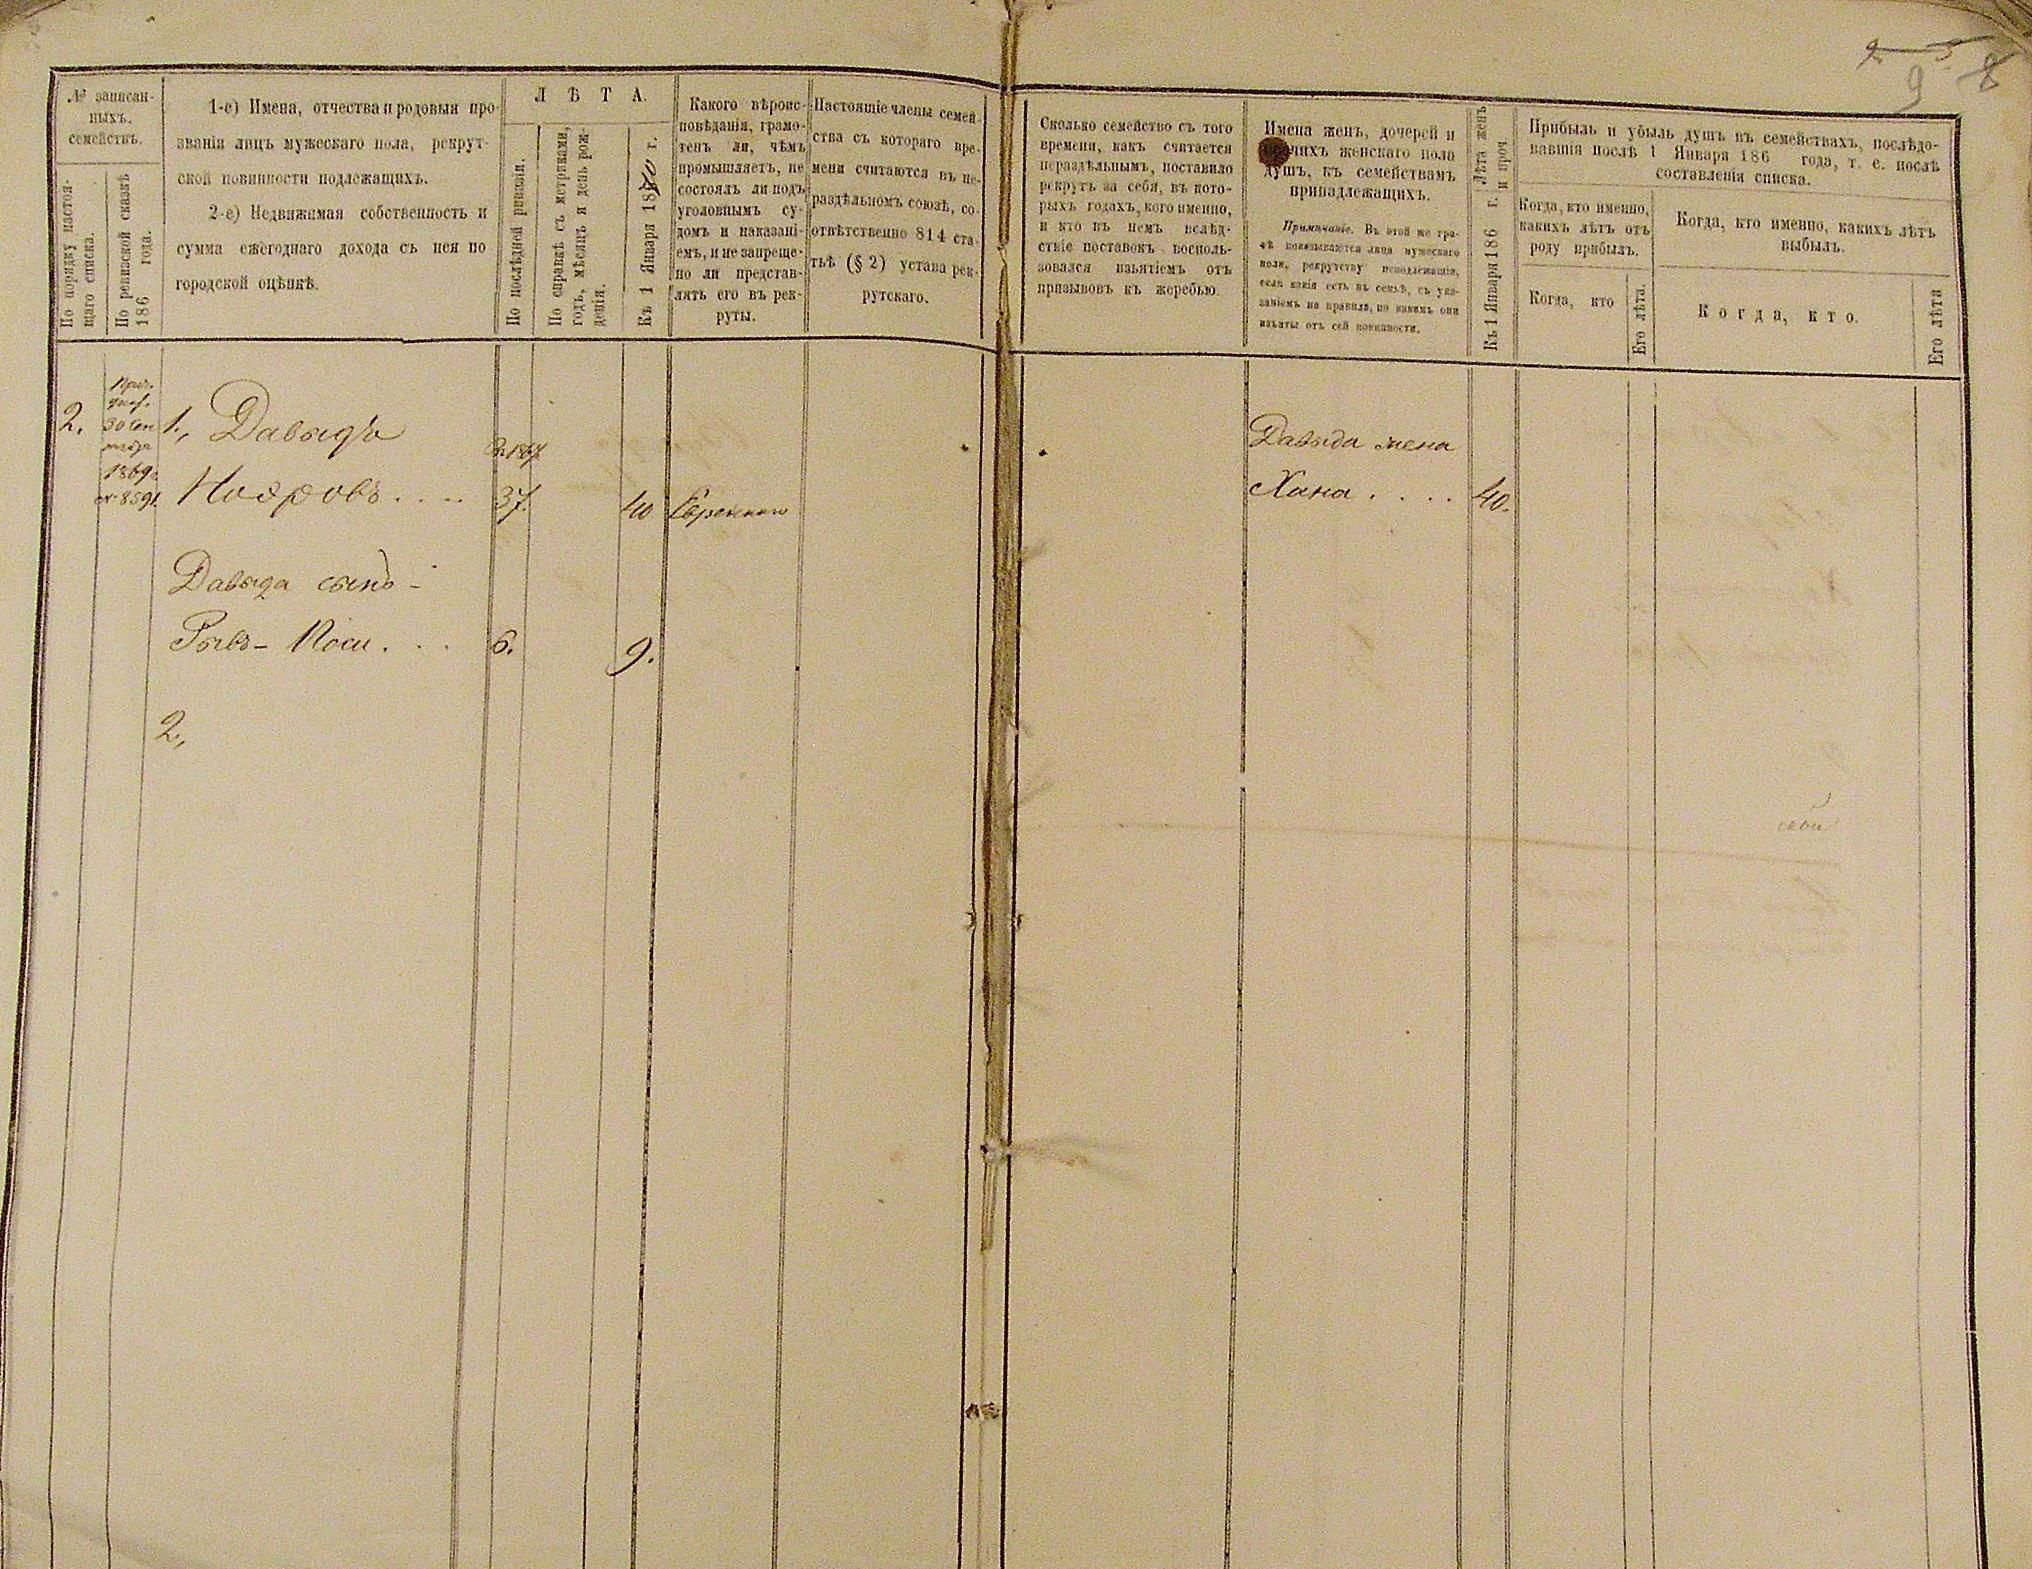 № записан-
ныхъ.
семействъ.
По порядку настоя-
щаго списка.
По ревизской сказкѣ
186 года.
1-е) Имена, отчества и родовыя про-
званія лицъ мужескаго пола, рекрут-
ской повинности подлежащихъ.
2-е) Недвижимая собственность и
сумма ежегоднаго дохода съ нея по
городской оцѣнкѣ.
ЛѢТА.
По послѣдней ревизіи.
По справкѣ съ метриками,
годъ, мѣсяцъ и день рож-
денія.
Къ 1 Января 1870 г.
Какого вѣроис-
повѣданія, грамо-
тенъ ли, чѣмъ
промышляетъ, не
состоялъ ли подъ
уголовнымъ су-
домъ и наказані-
емъ, и не запреще-
но ли представ-
лять его въ рек-
руты.
Настоящіе члены семей-
ства съ котораго вре-
мени считаются въ не-
раздѣльномъ союзѣ, со-
отвѣтственно 814 ста-
тьѣ (§ 2) устава рек-
рутскаго.
Сколько семейство съ того
времени, какъ считается
нераздѣльнымъ, поставило
рекрутъ за себя, въ кото-
рыхъ годахъ, кого именно,
и кто въ немъ вслѣд-
ствіе поставокъ восполь-
зовался изъятіемъ отъ
призывовъ къ жеребью.
Имена женъ, дочерей и
прочихъ женскаго пола
душъ, къ семействамъ
принадлежащихъ.
Примѣчаніе. Въ этой же гра-
фѣ показываются лица мужескаго
пола, рекрутству неподлежащія,
если какія есть въ семьѣ, съ ука-
заніемъ на правила, по какимъ они
изъяты отъ сей повинности.
Лѣта женъ
и проч
Къ 1 Января 186 г.
Прибыль и убыль душъ въ семействахъ, послѣдо-
вавшія послѣ 1 Января 186 года, т. е. послѣ
составленія списка.
Когда, кто именно,
какихъ лѣтъ отъ
роду прибылъ.
Когда, кто именно, какихъ лѣтъ
выбылъ.
Когда, кто
Его лѣта.
Когда, кто.
Его лѣта
9 8
2.
30 Сен
тября
1869г
№ 8591.
1., Давыдъ
Нохровъ . . . .
1867
37.
40
Еврейскаго
Давыда сынъ -
6.
9.
2,
Давыда жена
Хана . . . .
40.